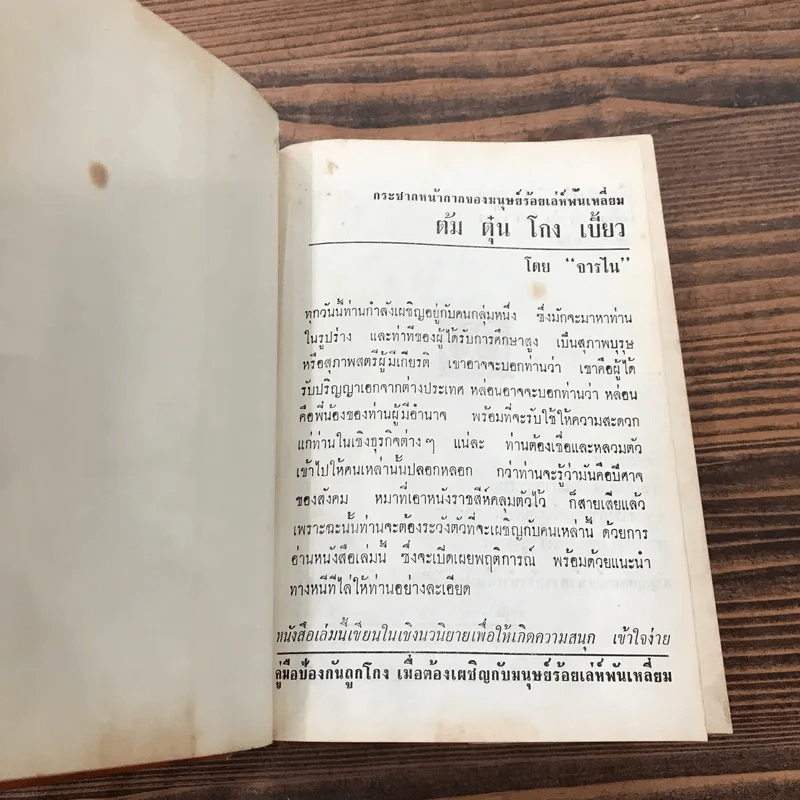 กระชากหน้ากากของมนุษย์ร้อยเล่ห์พันเหลี่ยม
ต้ม ตุ๋น โกง เบี้ยว
โดย “จารไน”
ทุกวันนี้ท่านกำลังเผชิญอยู่กับคนกลุ่มหนึ่ง ซึ่งมักจะมาหาท่าน
ในรูปร่าง และท่าทีของผู้ได้รับการศึกษาสูง เป็นสุภาพบุรุษ
หรือสุภาพสตรีผู้มีเกียรติ เขาอาจจะบอกท่านว่า เขาคือผู้ได้
รับปริญญาเอกจากต่างประเทศ หล่อนอาจจะบอกท่านว่า หล่อน
คือพี่น้องของท่านผู้มีอำนาจ พร้อมที่จะรับใช้ให้ความสะดวก
แก่ท่านในเชิงธุรกิจต่าง ๆ แน่ละ ท่านต้องเชื่อและหลวมตัว
เข้าไปให้คนเหล่านั้นปลอกหลอก กว่าท่านจะรู้ว่ามันคือปีศาจ
ของสังคม หมาที่เอาหนังราชสีห์คลุมตัวไว้ ก็สายเสียแล้ว
เพราะฉะนั้นท่านจะต้องระวังตัวที่จะเผชิญกับคนเหล่านี้ ด้วยการ
อ่านหนังสือเล่มนี้ ซึ่งจะเปิดเผยพฤติการณ์ พร้อมด้วยแนะนำ
ทางหนีทีไล่ให้ท่านอย่างละเอียด
หนังสือเล่มนี้เขียนในเชิงนวนิยายเพื่อให้เกิดความสนุก เข้าใจง่าย
คู่มือป้องกันถูกโกง เมื่อต้องเผชิญกับมนุษย์ร้อยเล่ห์พันเหลี่ยม